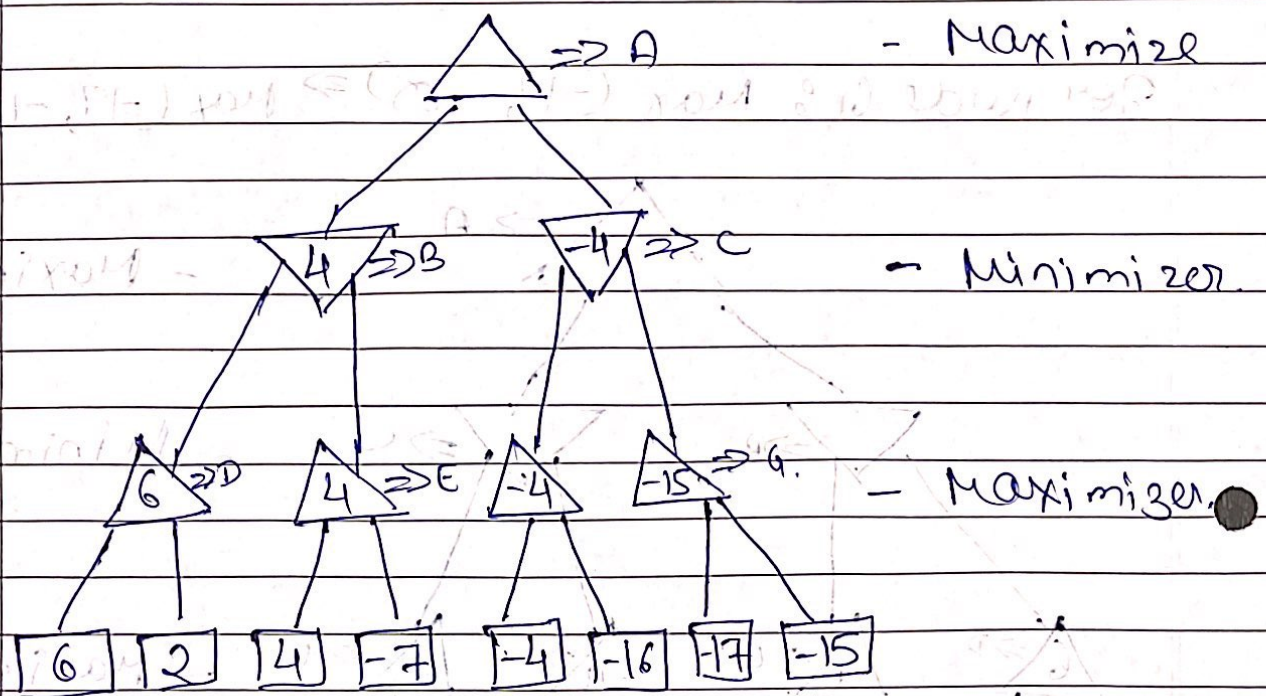 => A - Maximize
4 => B -4 => C - Minimizer.
6 => D 4 => E -4 -15 => G. - Maximizer.
6 2 4 -7 -4 -16 -17 -15